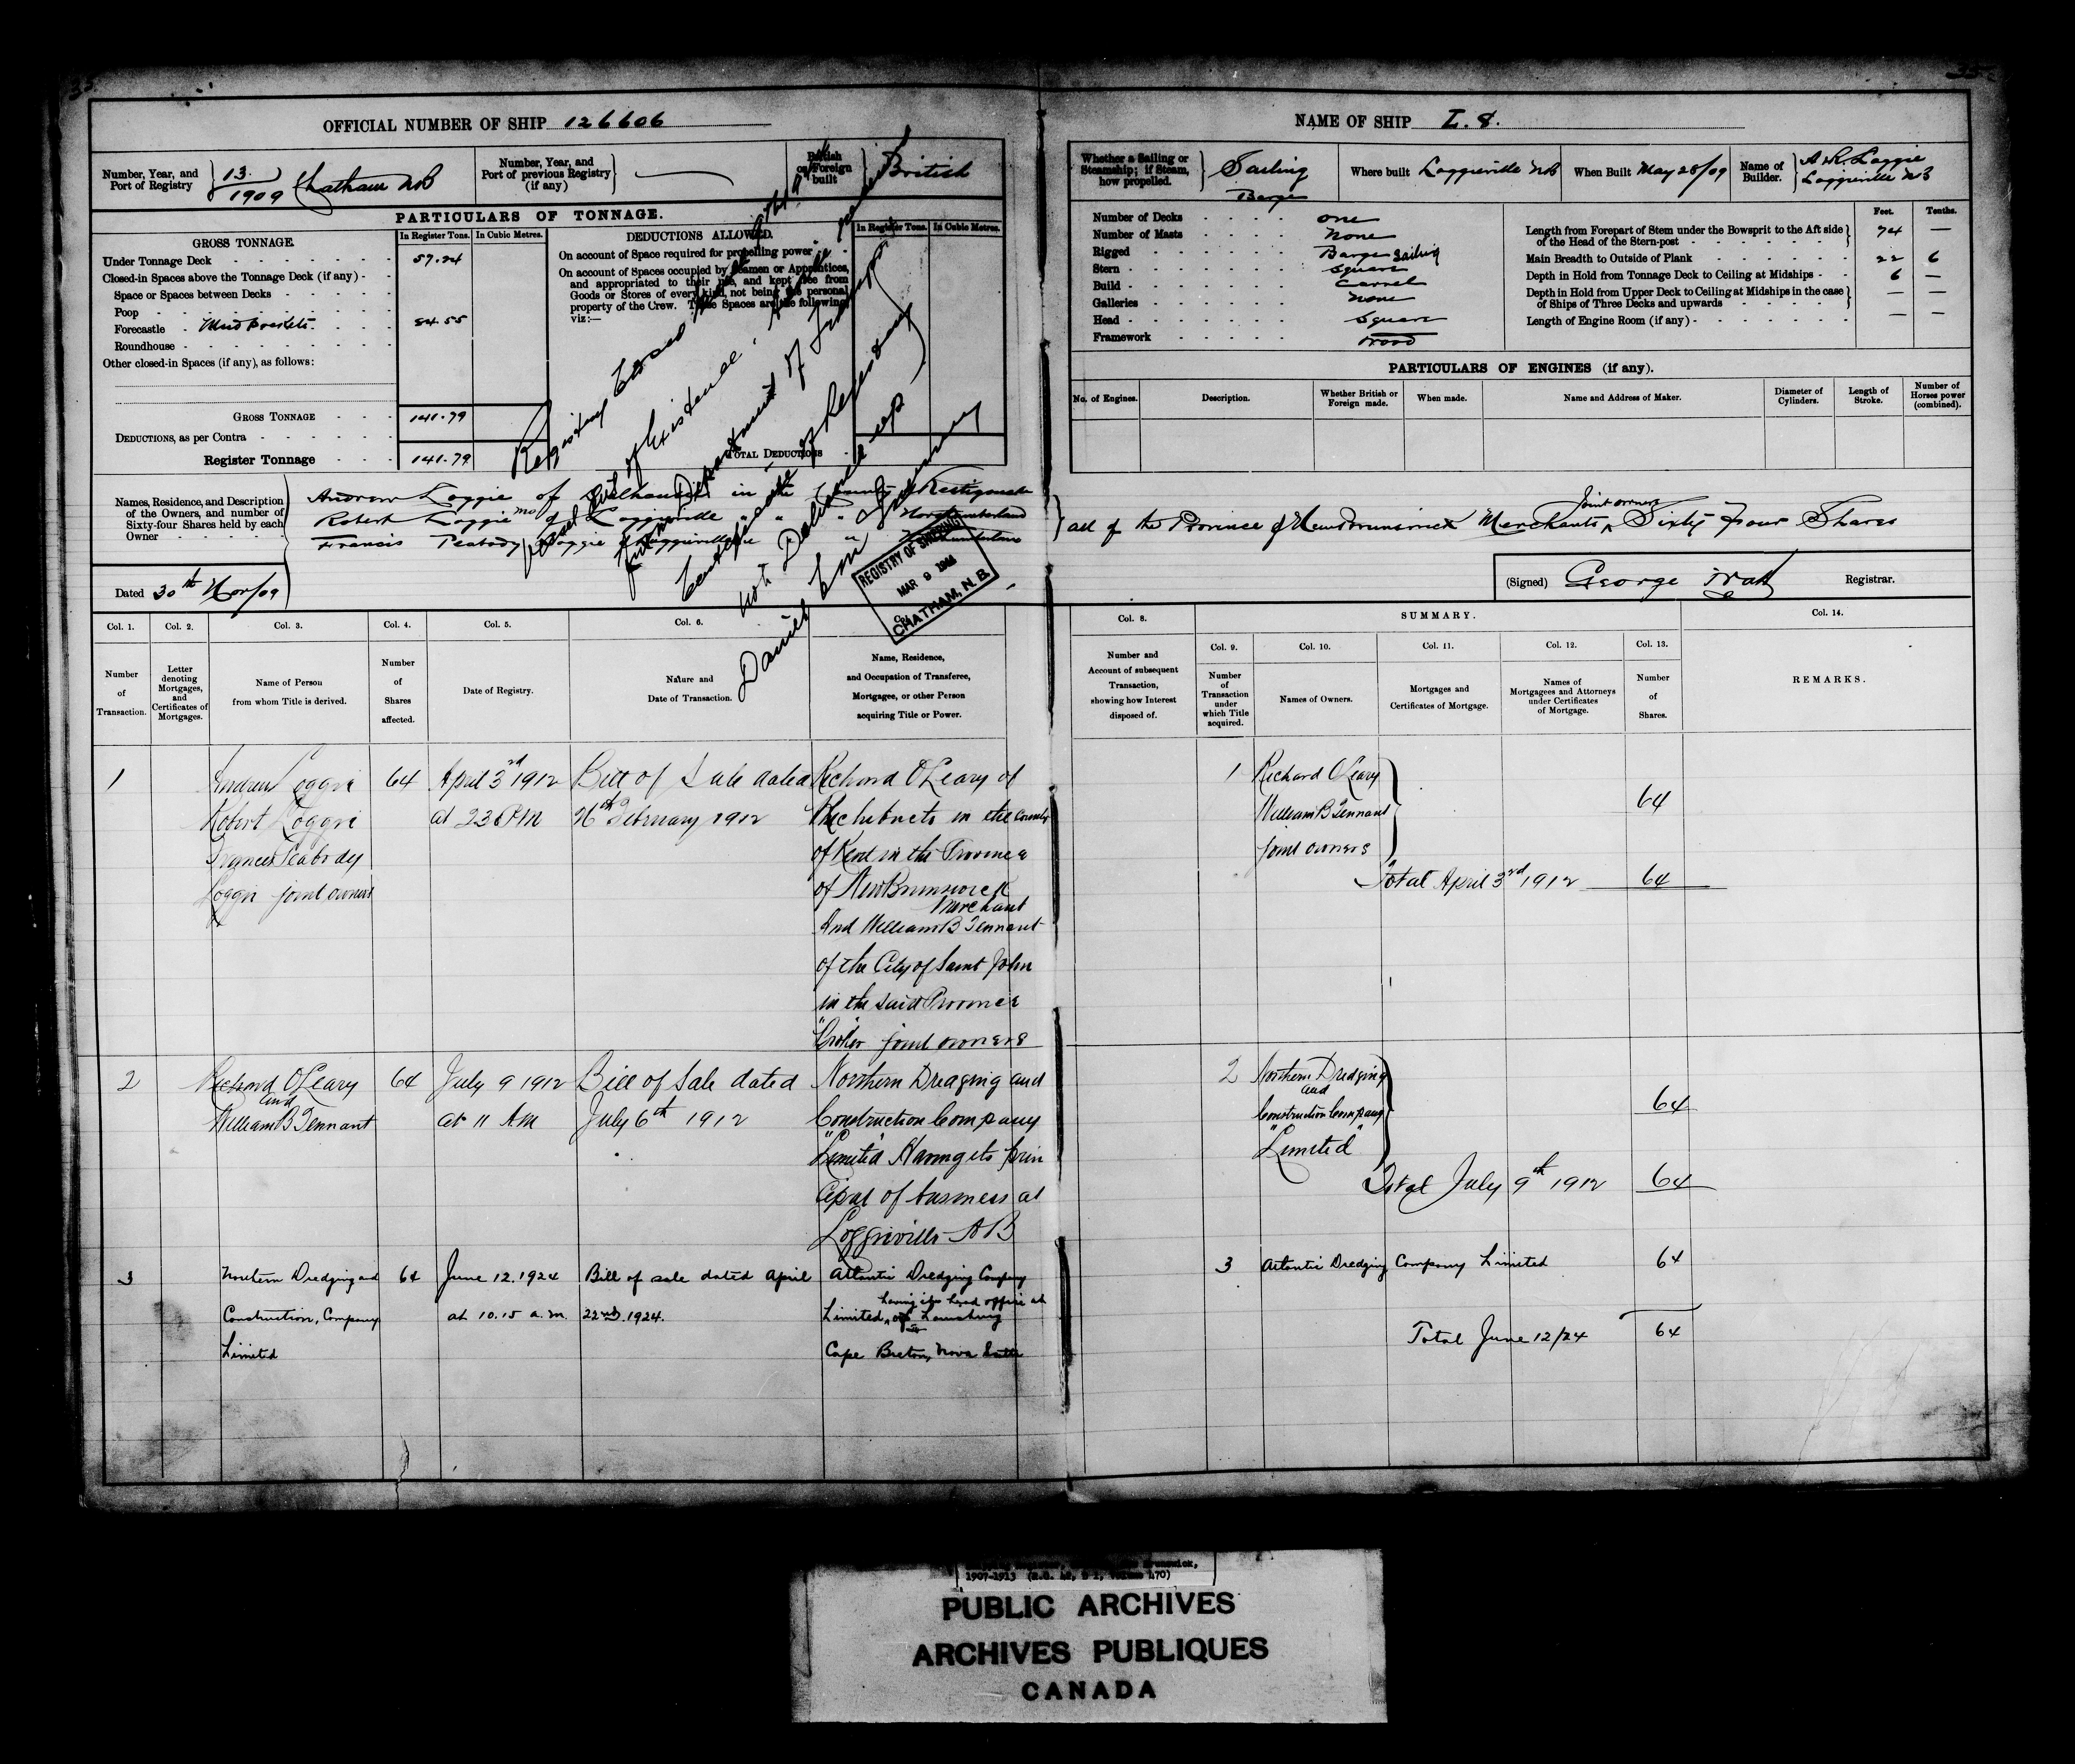 OFFICIAL NUMBER OF SHIP 126606
Number, Year, and Port of Registry
13. / 1909 Chatham NB
Number, Year, and Port of previous Registry (if any)
British or Foreign built
British
PARTICULARS OF TONNAGE.
GROSS TONNAGE.
In Register Tons.
In Cubic Metres.
Under Tonnage Deck 57.24
Closed-in Spaces above the Tonnage Deck (if any)
Space or Spaces between Decks
Poop
Forecastle Mud pockets 84.55
Roundhouse
Other closed-in Spaces (if any), as follows:
GROSS TONNAGE 141.79
DEDUCTIONS, as per Contra
Register Tonnage 141.79
DEDUCTIONS ALLOWED.
In Register Tons.
In Cubic Metres.
On account of Space required for propelling power
On account of Spaces occupied by Seamen or Apprentices,
and appropriated to their use, and kept free from
Goods or Stores of every kind, not being the personal
property of the Crew. These Spaces are the following,
viz:—
TOTAL DEDUCTIONS
Registry Closed
Vessel out of Existence.
Department of Transport
Certificate of Registry
not Delivered up
REGISTRY OF SHIPPING
MAR 9
CHATHAM, N. B.
Names, Residence, and Description
of the Owners, and number of
Sixty-four Shares held by each
Owner
Andrew Loggie of Dalhousie in the County of Restigouche
Robert Loggie of Loggieville " " " Northumberland
Francis Peabody Loggie of Loggieville " Northumberland
Dated 30th Nov/09
NAME OF SHIP L. 8.
Whether a Sailing or Steamship; if Steam, how propelled.
Sailing
Barge
Where built Loggieville NB
When Built May 28/09
Name of Builder.
A & R. Loggie
Loggieville NB
Number of Decks one
Number of Masts None
Rigged Barge Sailing
Stern Square
Build Carvel
Galleries None
Head Square
Framework Wood
Feet.
Tenths.
Length from Forepart of Stem under the Bowsprit to the Aft side of the Head of the Stern-post 74 —
Main Breadth to Outside of Plank 22 6
Depth in Hold from Tonnage Deck to Ceiling at Midships 6 —
Depth in Hold from Upper Deck to Ceiling at Midships in the case of Ships of Three Decks and upwards — —
Length of Engine Room (if any) — —
PARTICULARS OF ENGINES (if any).
No. of Engines.
Description.
Whether British or Foreign made.
When made.
Name and Address of Maker.
Diameter of Cylinders.
Length of Stroke.
Number of Horses power (combined).
all of the Province of New Brunswick Merchants Joint owners Sixty Four Shares
(Signed) George Watt Registrar.
Col. 1.
Col. 2.
Col. 3.
Col. 4.
Col. 5.
Col. 6.
Number of Transaction.
Letter denoting Mortgages, and Certificates of Mortgages.
Name of Person from whom Title is derived.
Number of Shares affected.
Date of Registry.
Nature and Date of Transaction.
Name, Residence, and Occupation of Transferee, Mortgagee, or other Person acquiring Title or Power.
Col. 8.
Number and Account of subsequent Transaction, showing how Interest disposed of.
SUMMARY.
Col. 9.
Col. 10.
Col. 11.
Col. 12.
Col. 13.
Number of Transaction under which Title acquired.
Names of Owners.
Mortgages and Certificates of Mortgage.
Names of Mortgagees and Attorneys under Certificates of Mortgage.
Number of Shares.
Col. 14.
REMARKS.
1
Andrew Loggie
Robert Loggie
Frances Peabody
Loggie joint owners
64
April 3rd 1912
at 23 PM
Bill of Sale dated
26th February 1912
Richard O'Leary of
Richibucto in the County
of Kent in the Province
of New Brunswick
Merchant
And William B Tennant
of the City of Saint John
in the said Province
"Broker" joint owners
1
Richard O'Leary
William B Tennant
joint owners
64
Total April 3rd 1912 64
2
Richard O'Leary
and
William B Tennant
64
July 9 1912
at 11 AM
Bill of Sale dated
July 6th 1912
Northern Dredging and
Construction Company
"Limited" Having its prin
cipal of business at
Loggieville NB
2
Northern Dredging
and
Construction Company
"Limited"
64
Total July 9th 1912 64
3
Northern Dredging and
Construction, Company
Limited
64
June 12. 1924
at 10.15 a.m.
Bill of sale dated April
22nd. 1924.
Atlantic Dredging Company
having its head office at
Limited, of Louisburg
Cape Breton, Nova Scotia
3
Atlantic Dredging Company Limited 64
Total June 12/24 64
1907-1913
PUBLIC ARCHIVES
ARCHIVES PUBLIQUES
CANADA